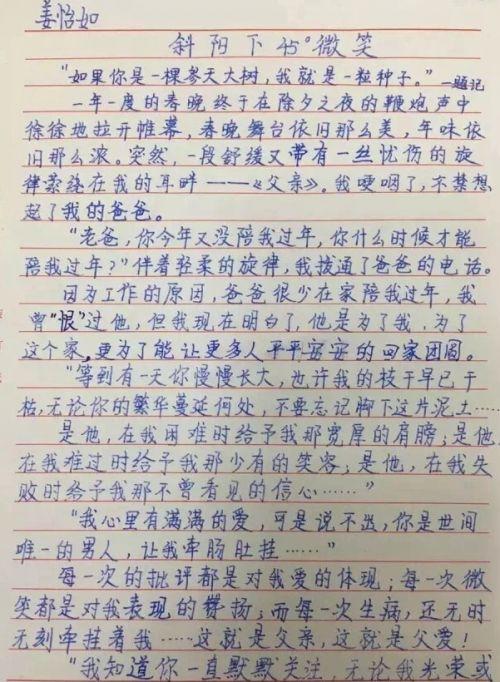 姜怡如
斜阳下45°微笑
“如果你是一棵参天大树，我就是一粒种子。”—题记
一年一度的春晚终于在除夕之夜的鞭炮声中
徐徐地拉开帷幕，春晚舞台依旧那么美，年味依
旧那么浓。突然，一段舒缓又带有一丝忧伤的旋
律萦绕在我的耳畔——《父亲》。我哽咽了，不禁想
起了我的爸爸。
“老爸，你今年又没陪我过年，你什么时候才能
陪我过年？”伴着轻柔的旋律，我拨通了爸爸的电话。
因为工作的原因，爸爸很少在家陪我过年，我
曾“恨”过他，但我现在明白了，他是为了我，为了
这个家，更为了能让更多人平平安安的回家团圆。
“等到有一天你慢慢长大，也许我的枝干早已干
枯，无论你的繁华蔓延何处，不要忘记脚下这片泥土……
是他，在我困难时给予我那宽厚的肩膀；是他，
在我难过时给予我那少有的笑容；是他，在我失
败时给予我那不曾看见的信心……”
“我心里有满满的爱，可是说不出，你是世间
唯一的男人，让我牵肠肚挂……”
每一次的批评都是对我爱的体现；每一次微
笑都是对我表现的赞扬；而每一次生病，还无时
无刻牵挂着我……这就是父亲，这就是父爱！
“我知道你一直默默关注，无论我光荣或